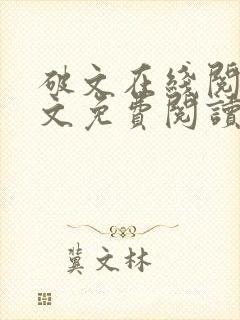 破文在綫閱
文免費閱讀
冀文林